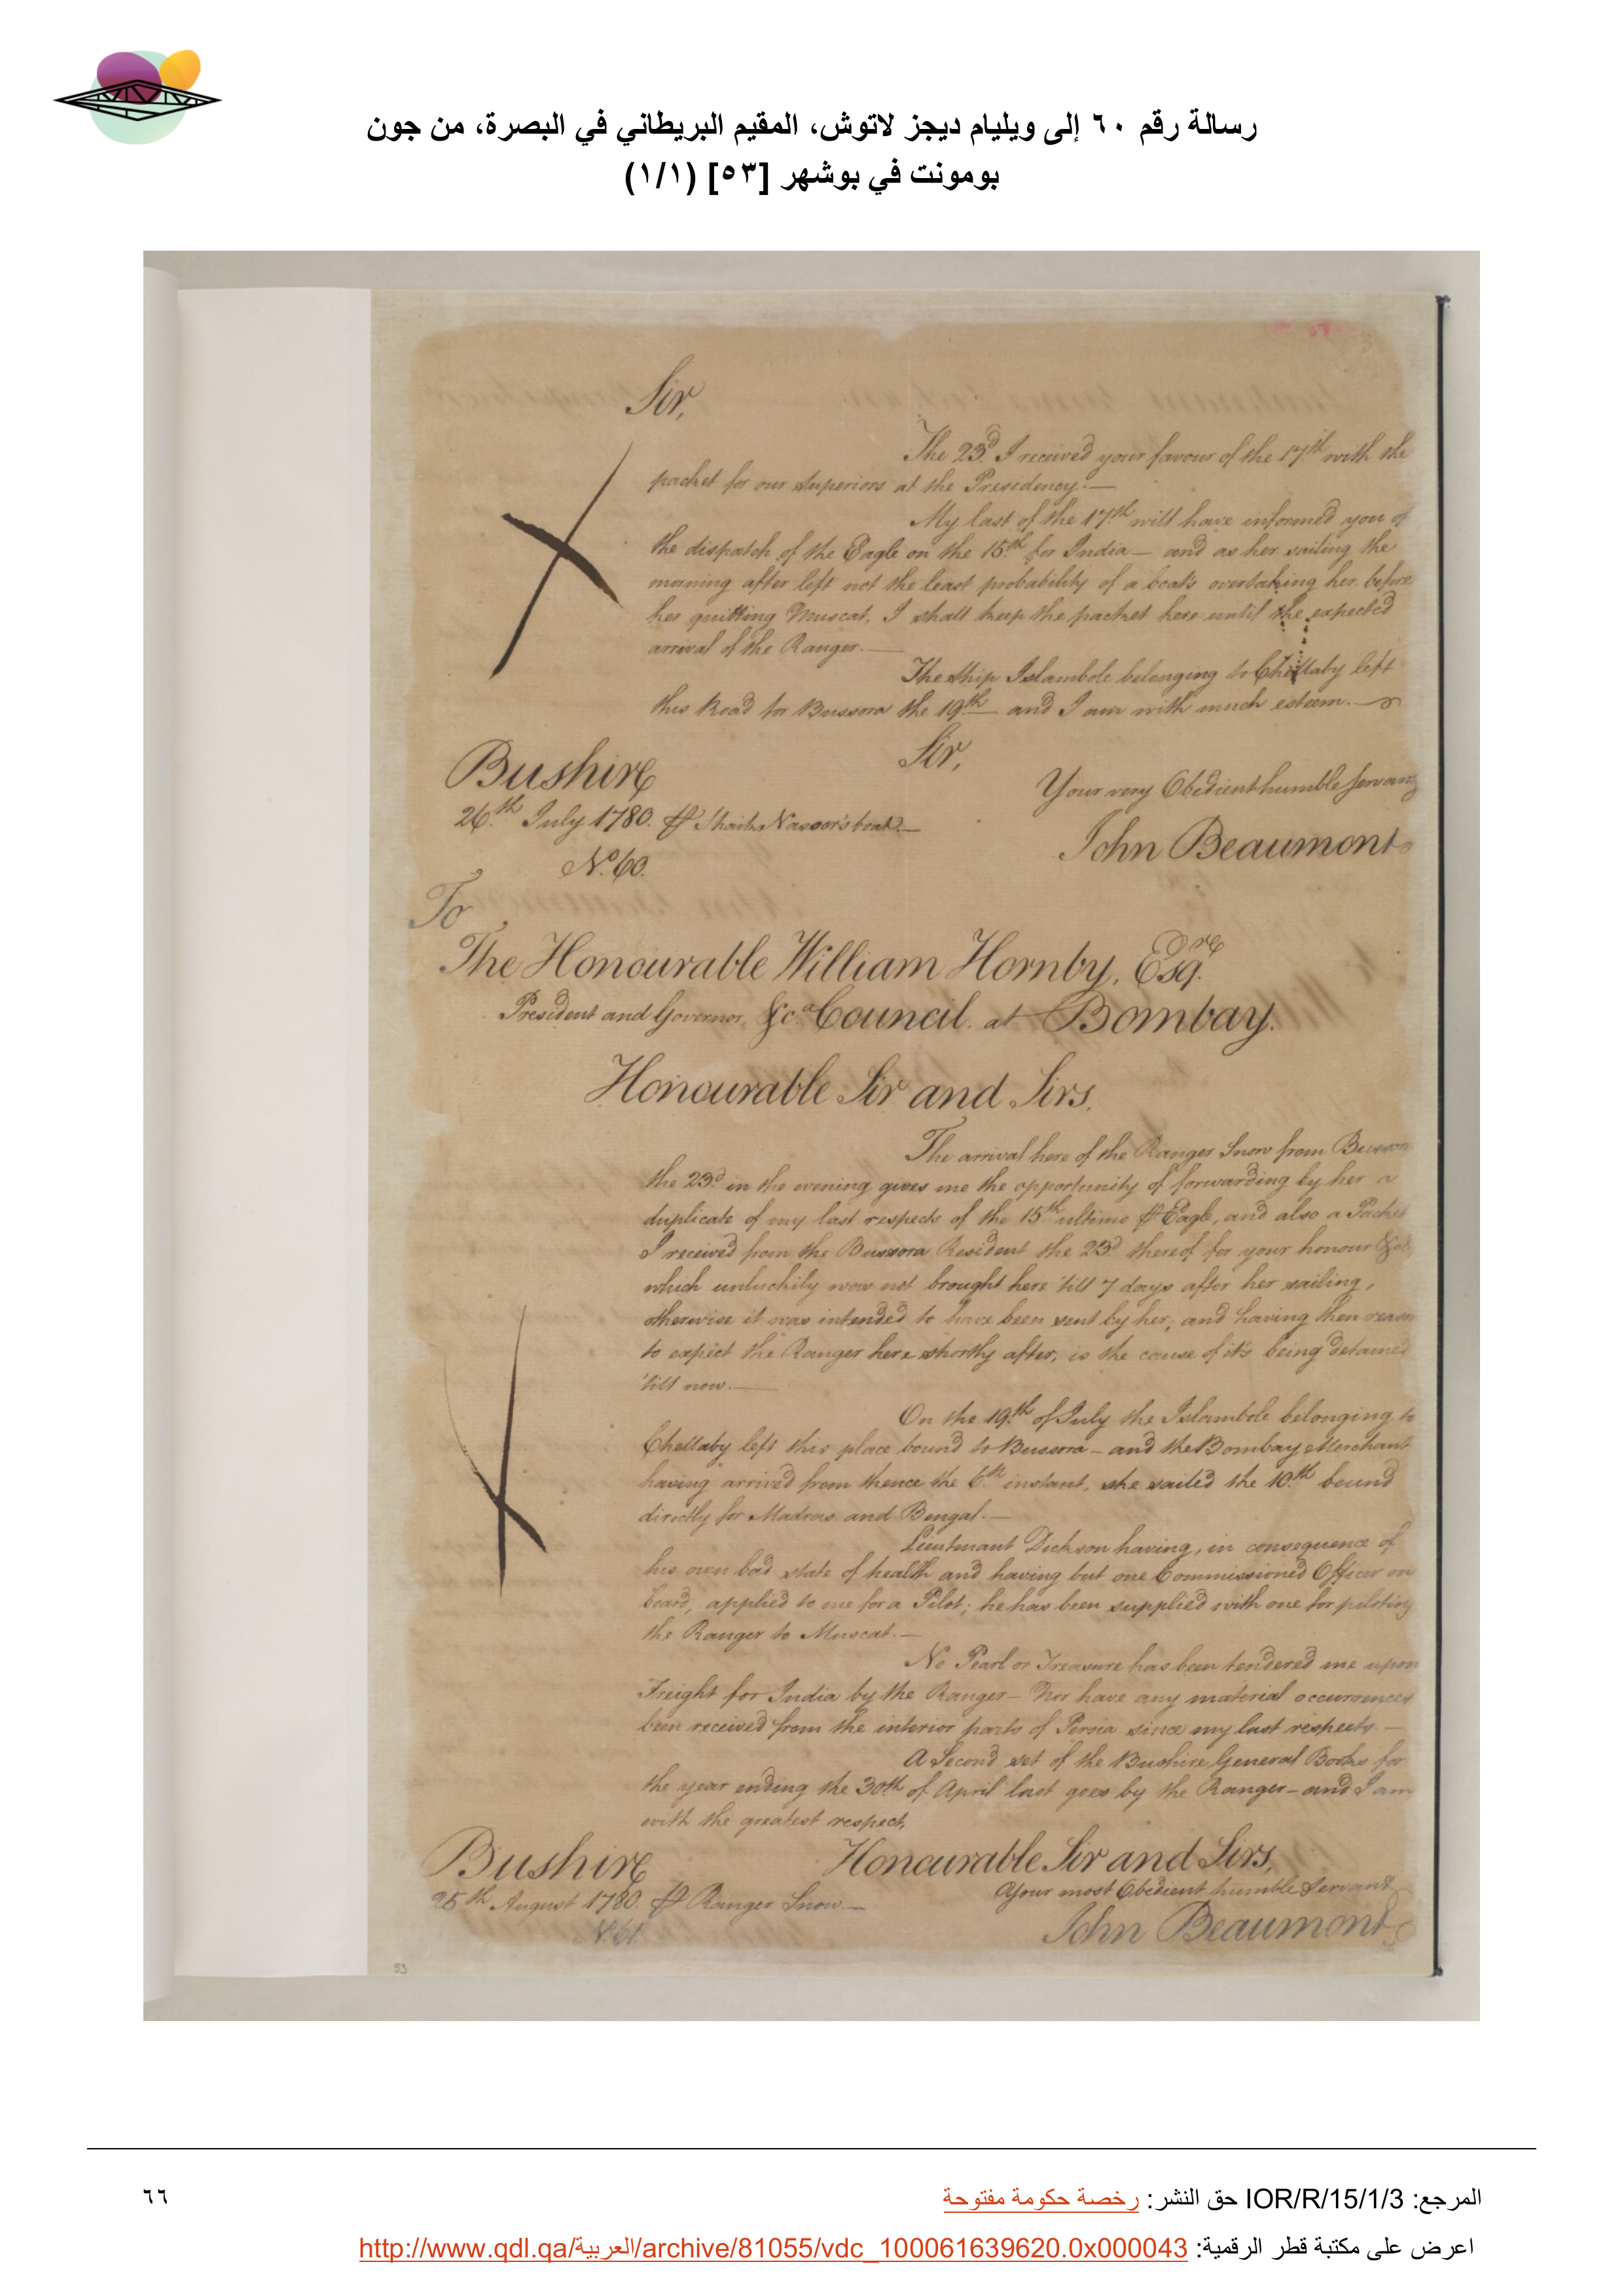 رسالة رقم ٦٠ إلى ويليام ديجز لاتوش، المقيم البريطاني في البصرة، من جون
بومونت في بوشهر [٥٣] (١/١)
Sir,
The 23d. I received your favour of the 17th. with the
packet for our Superiors at the Presidency.—
My last of the 17th. will have informed you of
the dispatch of the Eagle on the 15th. for India— and as her sailing the
morning after left not the least probability of a boat's overtaking her before
her quitting Muscat, I shall keep the packet here until the expected
arrival of the Ranger.—
The ship Islambole belonging to Chellaby left
this Road for Bussora the 19th.— and I am with much esteem.—
Sir,
Bushire
Your very Obedient humble Servant
26th. July 1780. ⅌ Shaik Nassor's boat.—
John Beaumont
No. 60.
To
The Honourable William Hornby, Esqre.
President and Governor, &ca. Council, at Bombay.
Honourable Sir and Sirs,
The arrival here of the Ranger Snow from Bussora
the 23d. in the evening gives me the opportunity of forwarding by her a
duplicate of my last respects of the 15th ultimo ⅌ Eagle, and also a Packet
I received from the Bussora Resident the 23d thereof for your honour &ca.
which unluckily was not brought here 'till 7 days after her sailing,
otherwise it was intended to have been sent by her; and having then reason
to expect the Ranger here shortly after, is the cause of it's being detained
'till now.—
On the 19th. of July the Islambole belonging to
Chellaby left this place bound to Bussora— and the Bombay Merchant
having arrived from thence the 6th. instant, she sailed the 10th. bound
directly for Madras and Bengal.—
Lieutenant Dickson having, in consequence of
his own bad state of health and having but one Commissioned Officer on
board, applied to me for a Pilot; he has been supplied with one for piloting
the Ranger to Muscat.—
No Pearl or Treasure has been tendered me upon
Freight for India by the Ranger— Nor have any material occurrences
been received from the interior parts of Persia since my last respects.—
A Second set of the Bushire General Books for
the year ending the 30th of April last goes by the Ranger— and I am
with the greatest respect,
Bushire
Honourable Sir and Sirs,
25th. August 1780. ⅌ Ranger Snow.—
Your most Obedient humble Servant
No. 61.
John Beaumont
53
المرجع: IOR/R/15/1/3 حق النشر: رخصة حكومة مفتوحة
٦٦
اعرض على مكتبة قطر الرقمية: http://www.qdl.qa/العربية/archive/81055/vdc_100061639620.0x000043